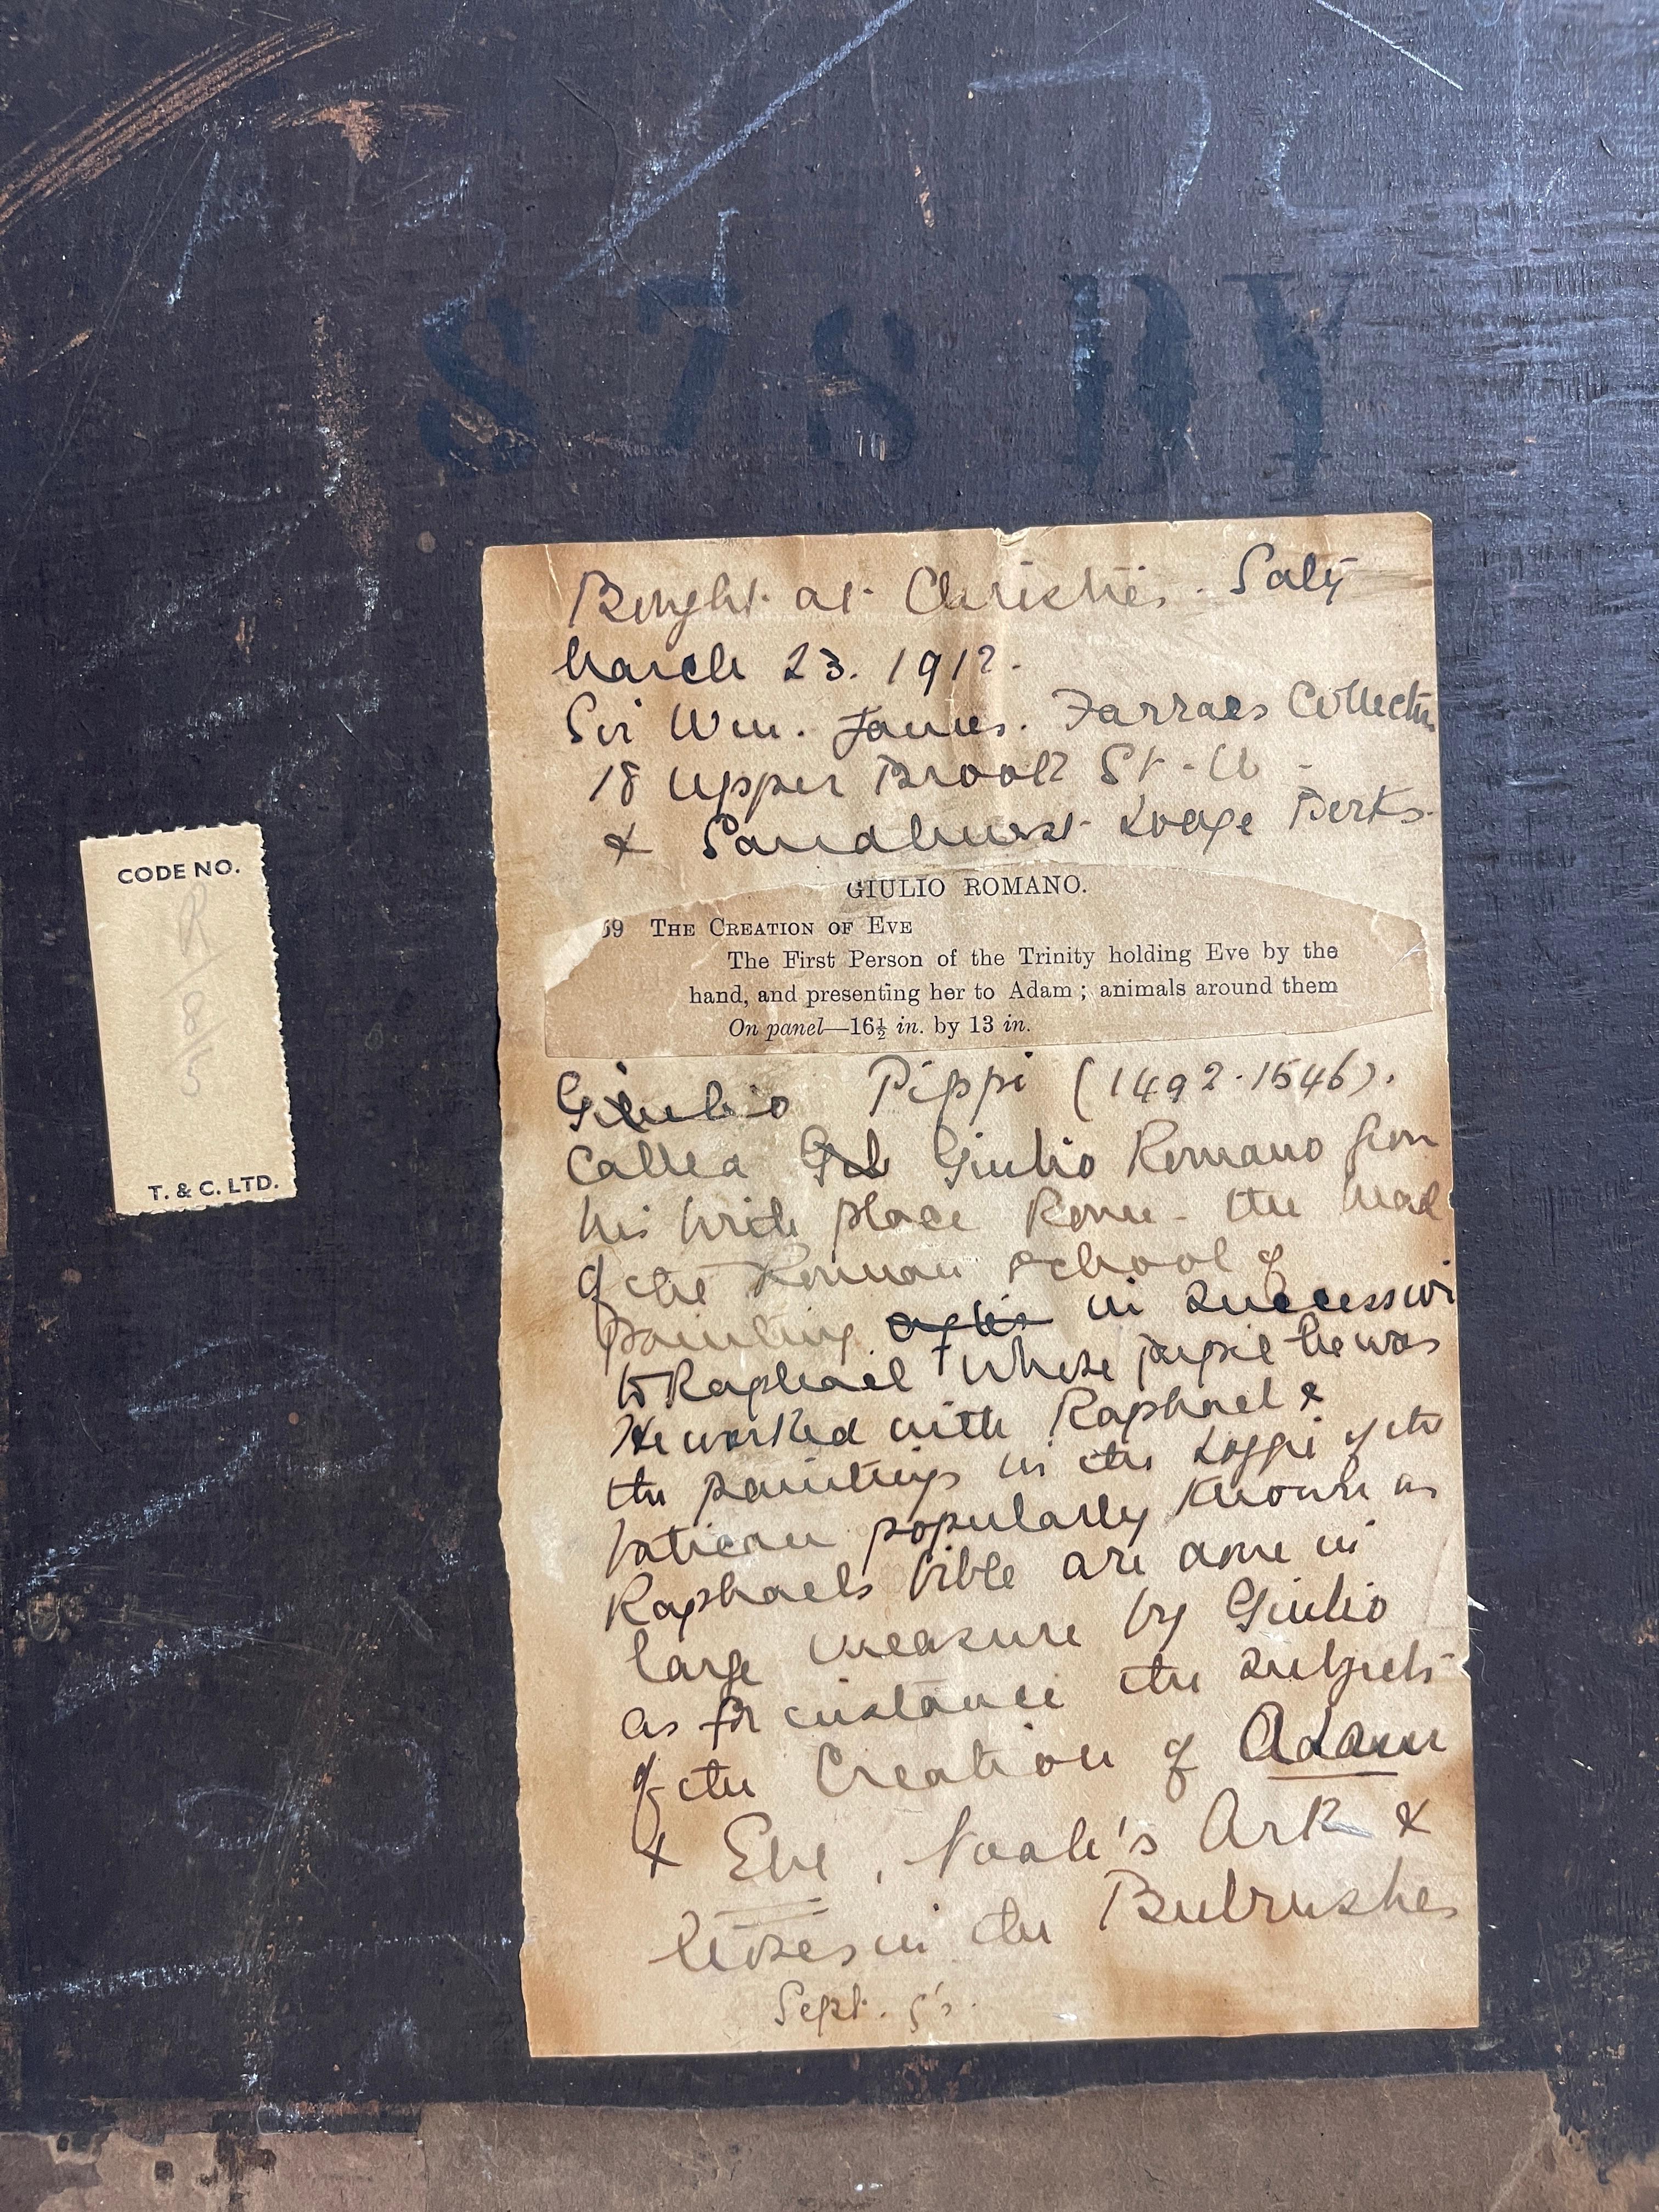 878 DY
Bought at Christie's. Saty
March 23. 1912.
Sir Wm. James. Farraes Collectn
18 Upper Brook St. W -
& Sandhurst Lodge Berks.
GIULIO ROMANO.
59 THE CREATION OF EVE
The First Person of the Trinity holding Eve by the
hand, and presenting her to Adam; animals around them
On panel—16½ in. by 13 in.
Giulio Pippi (1492-1546).
called Giulio Romano from
his birth place Rome - the head
of the Roman School of
painting after in succession
to Raphael whose pupil he was
He worked with Raphael &
the paintings in the Loggi of the
Vatican popularly known as
Raphaels bible are done in
large measure by Giulio
as for instance the subjects
of the Creation of Adam
& Eve, Noah's Ark &
Moses in the Bulrushes
Sept.
CODE NO.
R/8/5
T. & C. LTD.